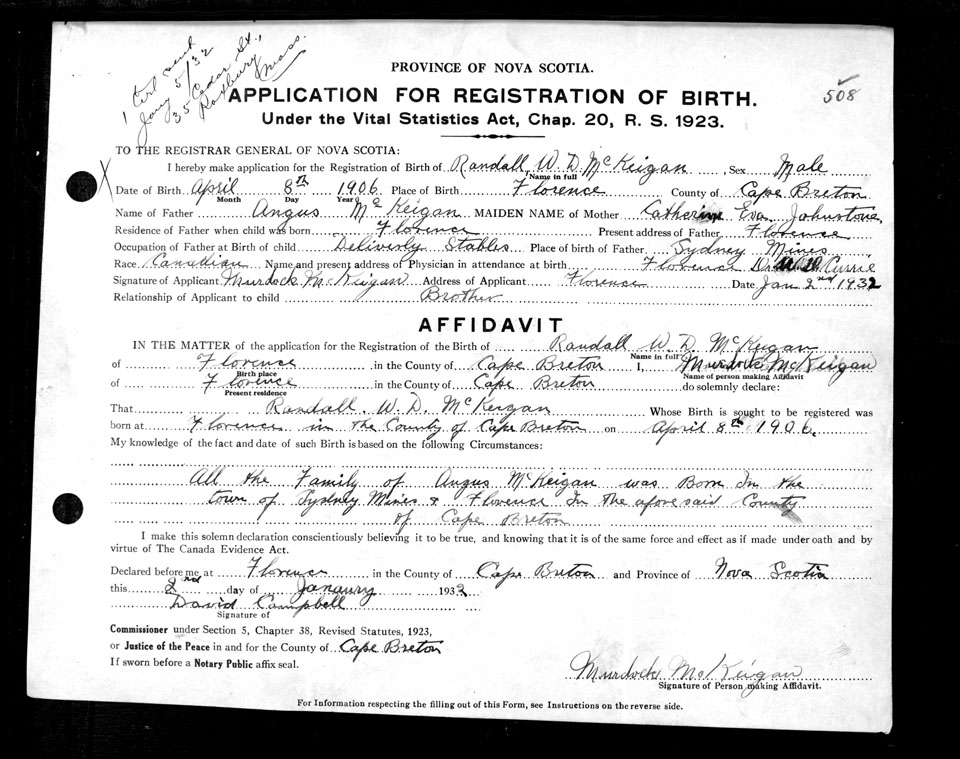 1 Cert sent
Jany 5/32
35 Cedar St.,
Roxbury
Mass.
508
PROVINCE OF NOVA SCOTIA.
APPLICATION FOR REGISTRATION OF BIRTH.
Under the Vital Statistics Act, Chap. 20, R. S. 1923.
TO THE REGISTRAR GENERAL OF NOVA SCOTIA:
I hereby make application for the Registration of Birth of Randall W. D. McKeigan Sex Male
Name in full
Date of Birth April 8th 1906 Place of Birth Florence County of Cape Breton
Month Day Year
Name of Father Angus McKeigan MAIDEN NAME of Mother Catherine Eva Johnstone
Residence of Father when child was born Florence Present address of Father Florence
Occupation of Father at Birth of child Deliverly Stables Place of birth of Father Sydney Mines
Race Canadian Name and present address of Physician in attendance at birth Florence Dr Currie
Signature of Applicant Murdock McKeigan Address of Applicant Florence Date Jan 2nd 1932
Relationship of Applicant to child Brother
AFFIDAVIT
IN THE MATTER of the application for the Registration of the Birth of Randall W. D. McKeigan
Name in full
of Florence in the County of Cape Breton I, Murdock McKeigan
Birth place Name of person making Affidavit
of Florence in the County of Cape Breton do solemnly declare:
Present residence
That Randall W. D. McKeigan Whose Birth is sought to be registered was
born at Florence in the County of Cape Breton on April 8th 1906.
My knowledge of the fact and date of such Birth is based on the following Circumstances:
All the Family of Angus McKeigan was Born In the
town of Sydney Mines & Florence In the aforesaid County
of Cape Breton
I make this solemn declaration conscientiously believing it to be true, and knowing that it is of the same force and effect as if made under oath and by
virtue of The Canada Evidence Act.
Declared before me at Florence in the County of Cape Breton and Province of Nova Scotia
this 2nd day of Janaury 1932
David Campbell
Signature of
Commissioner under Section 5, Chapter 38, Revised Statutes, 1923,
or Justice of the Peace in and for the County of Cape Breton
If sworn before a Notary Public affix seal.
Murdock McKeigan
Signature of Person making Affidavit.
For Information respecting the filling out of this Form, see Instructions on the reverse side.